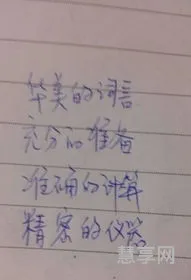 华美的词言
充分的准备
准确的讲解
精密的仪器
慧享网